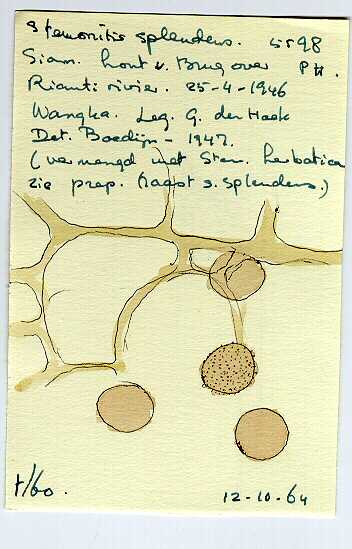 Stemonitis splendens. 5598
Siam. hout v. Brug over PH.
rivier. 25-4-1946
Wangka. Leg. G. den Hoek
Det. Boedijn - 1947.
(vermengd met Stem. herbatica
zie prep. (naast s. splendens.)
12-10-64